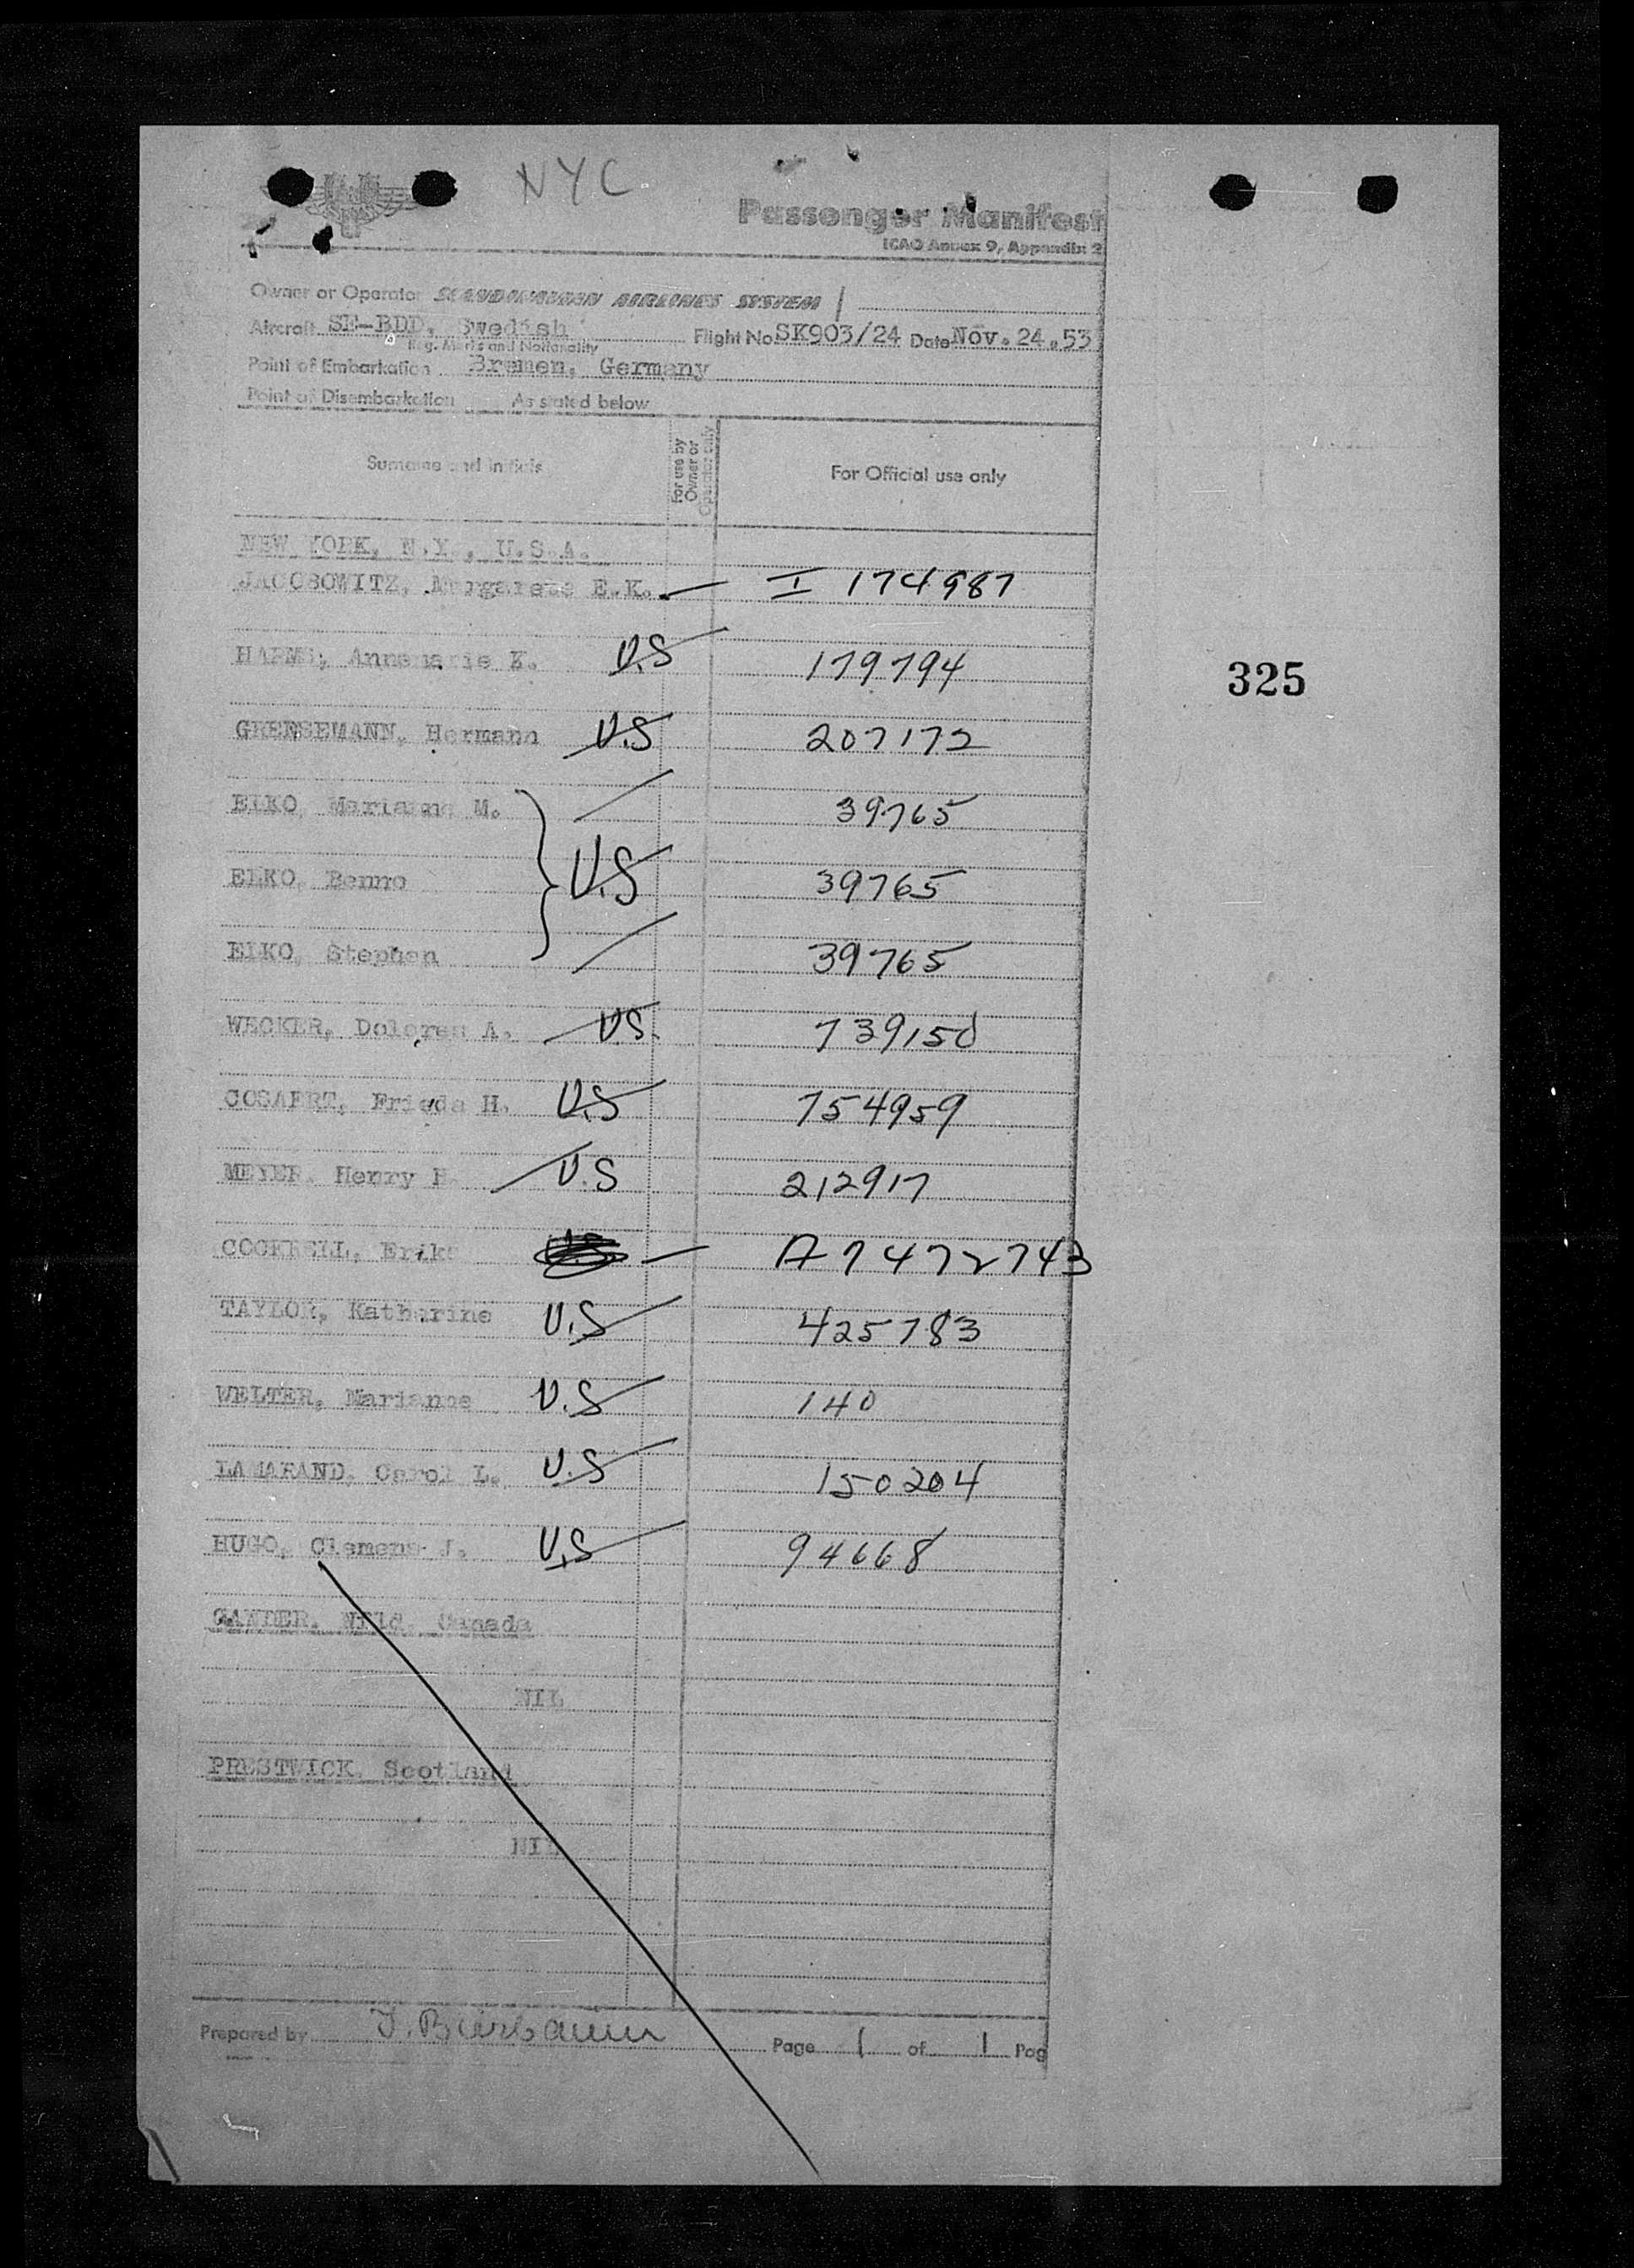 NYC
Passenger Manifest
ICAO Annex 9, Appendix 2
Owner or Operator SCANDINAVIAN AIRLINES SYSTEM
Aircraft SE-BDD, Swedish Flight No SK903/24 Date Nov. 24.53
Reg. Marks and Nationality
Point of Embarkation Bremen, Germany
Point of Disembarkation As stated below
Surname and initials For use by Owner or Operator only For Official use only
NEW YORK, N.Y., U.S.A.
JACOBOWITZ, Margarete E.K. — I 174987
HARMS, Annemarie E. U.S 179794
325
GRENSEMANN, Hermann U.S 207172
ELKO, Marianne M. 39765
ELKO, Benno U.S 39765
ELKO, Stephen 39765
WECKER, Dolores A. U.S. 739150
COSAERT, Frieda H. U.S 754959
MEYER, Henry H. U.S 212917
COCKRELL, Erika — A7472743
TAYLOR, Katharine U.S 425783
WELTER, Marianne U.S 140
LAMARAND, Carol L. U.S 150204
HUGO, Clemens J. U.S 94668
GANDER, Nfld, Canada
NIL
PRESTWICK, Scotland
NIL
Prepared by Page 1 of 1 Pag